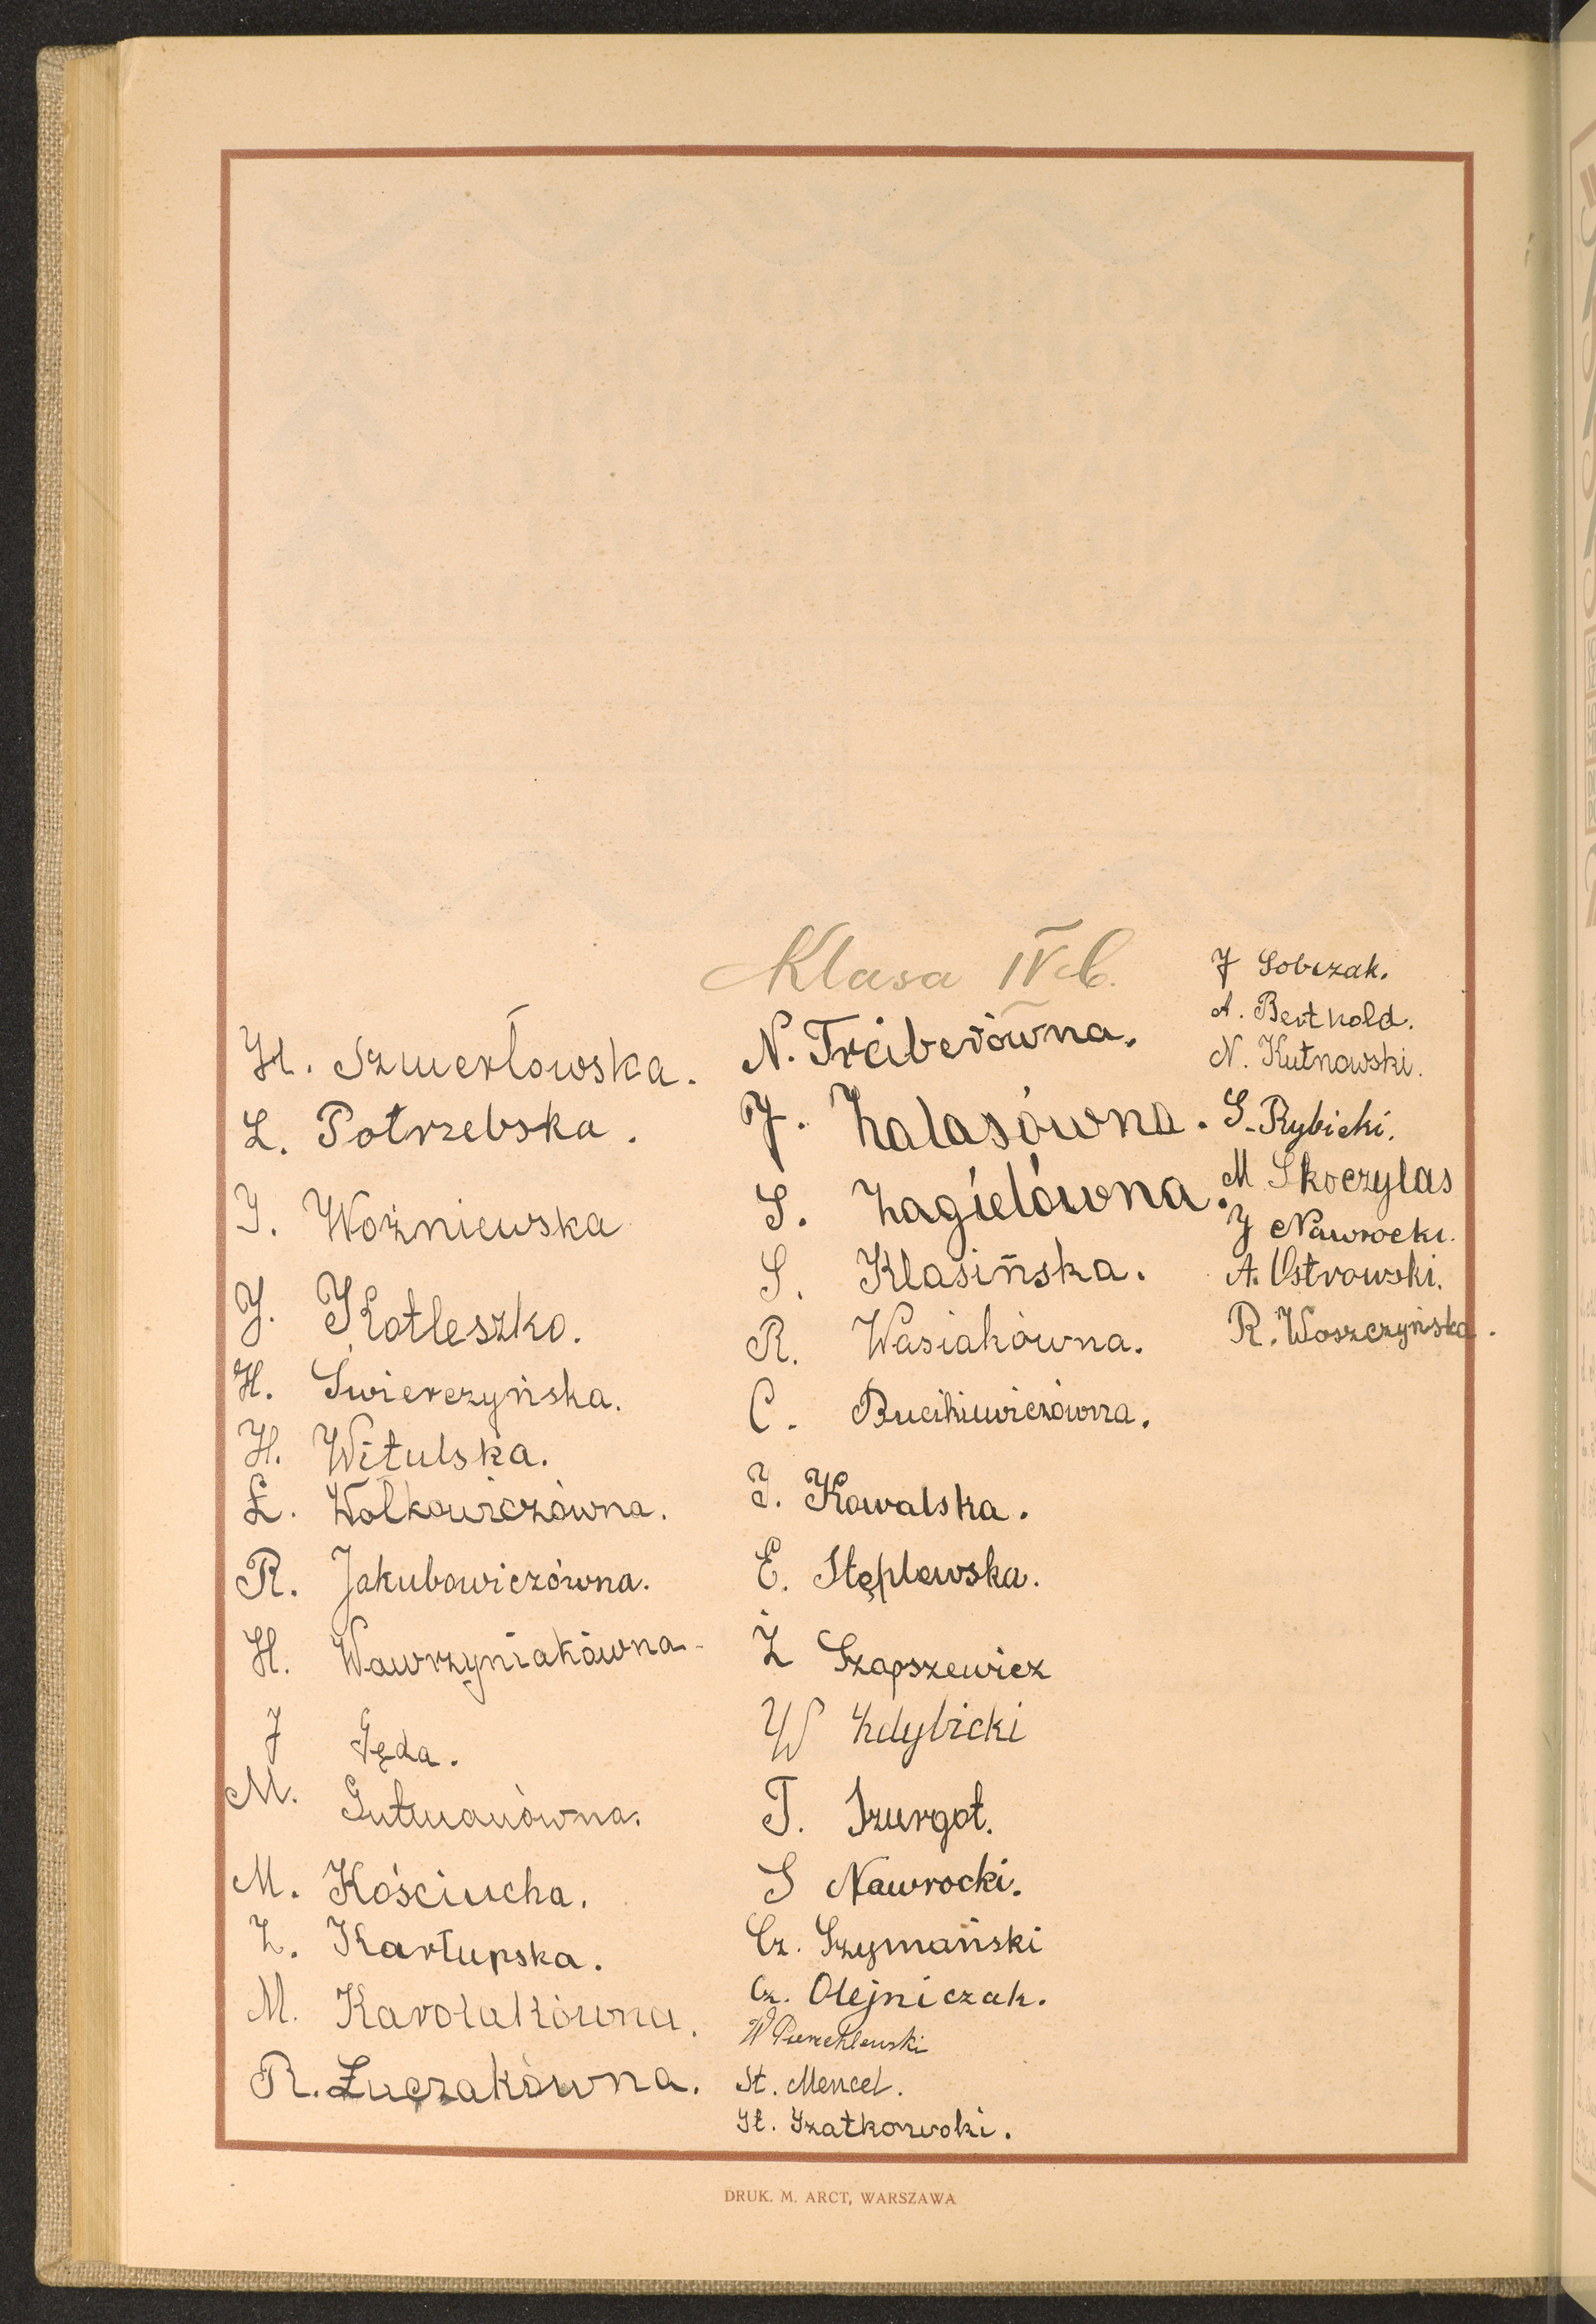 Klasa IV b.
H. Szmerłowska.
L. Potrzebska.
I. Woźniewska
J. Kotleszko.
H. Świerczyńska.
H. Witulska.
Ł. Wołkowiczówna.
R. Jakubowiczówna.
H. Wawrzyniakówna
J Gęda.
M. Gutmanówna.
M. Kościucha.
Z. Karłupska.
M. Karolakówna.
R. Łuczakówna.
N. Treiberówna.
J. Zalasówna.
S. Zagielówna.
S. Klasińska.
R. Wasiakówna.
C.
I. Kowalska.
E. Stęplewska.
Ż Szapszewicz
W Zdybicki
T. Szurgot.
S Nawrocki.
Cz. Szymański
Cz. Olejniczak.
W
St. Mencel.
St. Szatkowski.
J Sobczak.
A. Berthold.
N. Kutnowski.
S. Rybicki.
M Skoczylas
J Nawrocki.
A. Ostrowski.
R. Woszczyńska.
DRUK. M. ARCT, WARSZAWA